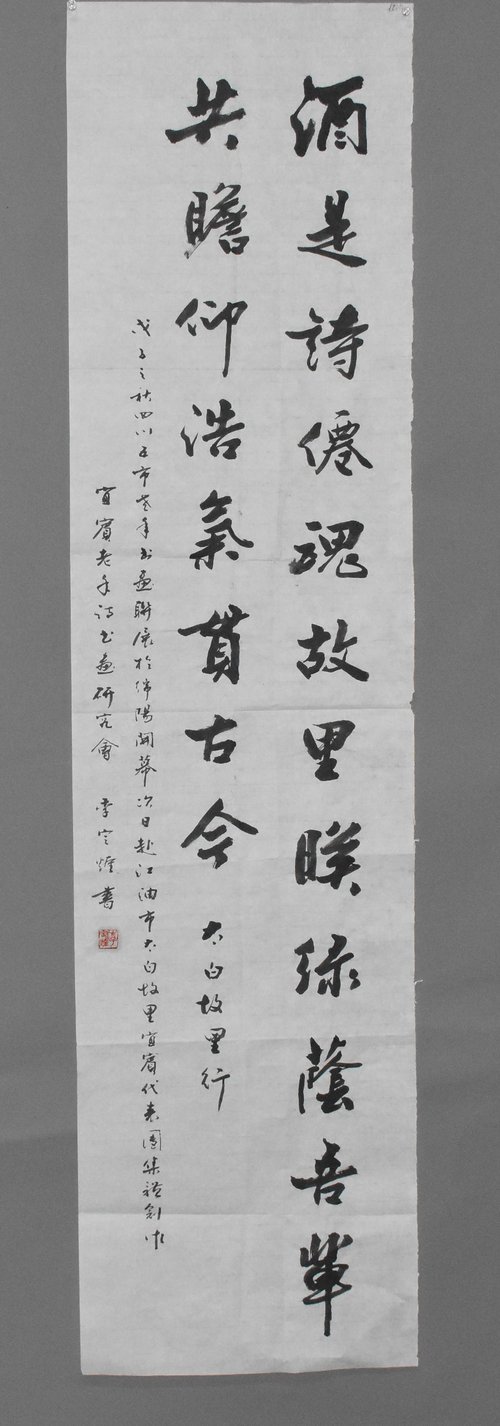 酒是詩僊魂故里睽绿蔭吾輩
共瞻仰浩氣貫古今 太白故里行
戊子之秋四川五市老年书画联展於绵陽開幕次日赴江油市太白故里宜賓代表團集體創作
宜賓老年詩书画研究會 李定 書